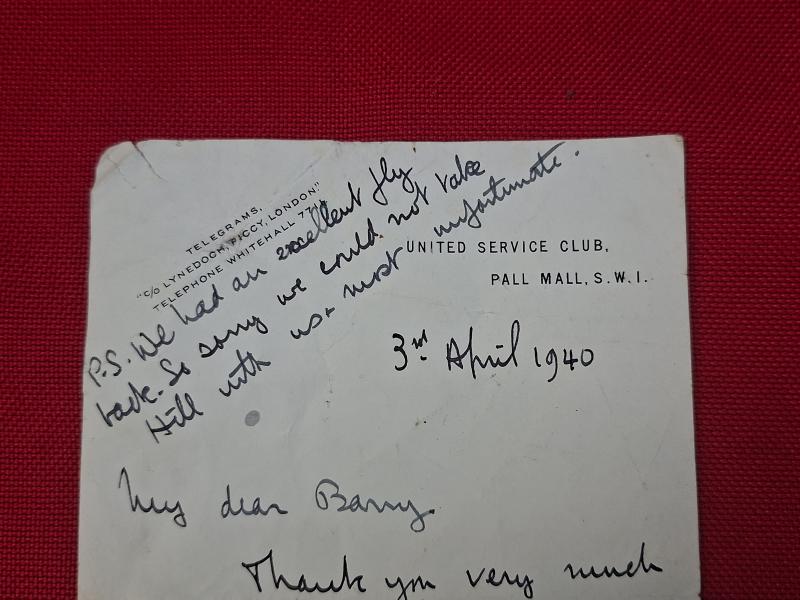 TELEGRAMS,
"C/O LYNEDOCH, PICCY, LONDON."
TELEPHONE WHITEHALL
UNITED SERVICE CLUB,
PALL MALL, S.W.1.
P.S. We had an excellent fly
back. So sorry we could not take
Hill with us + most unfortunate.
3rd. April 1940
My dear Barry.
Thank you very much